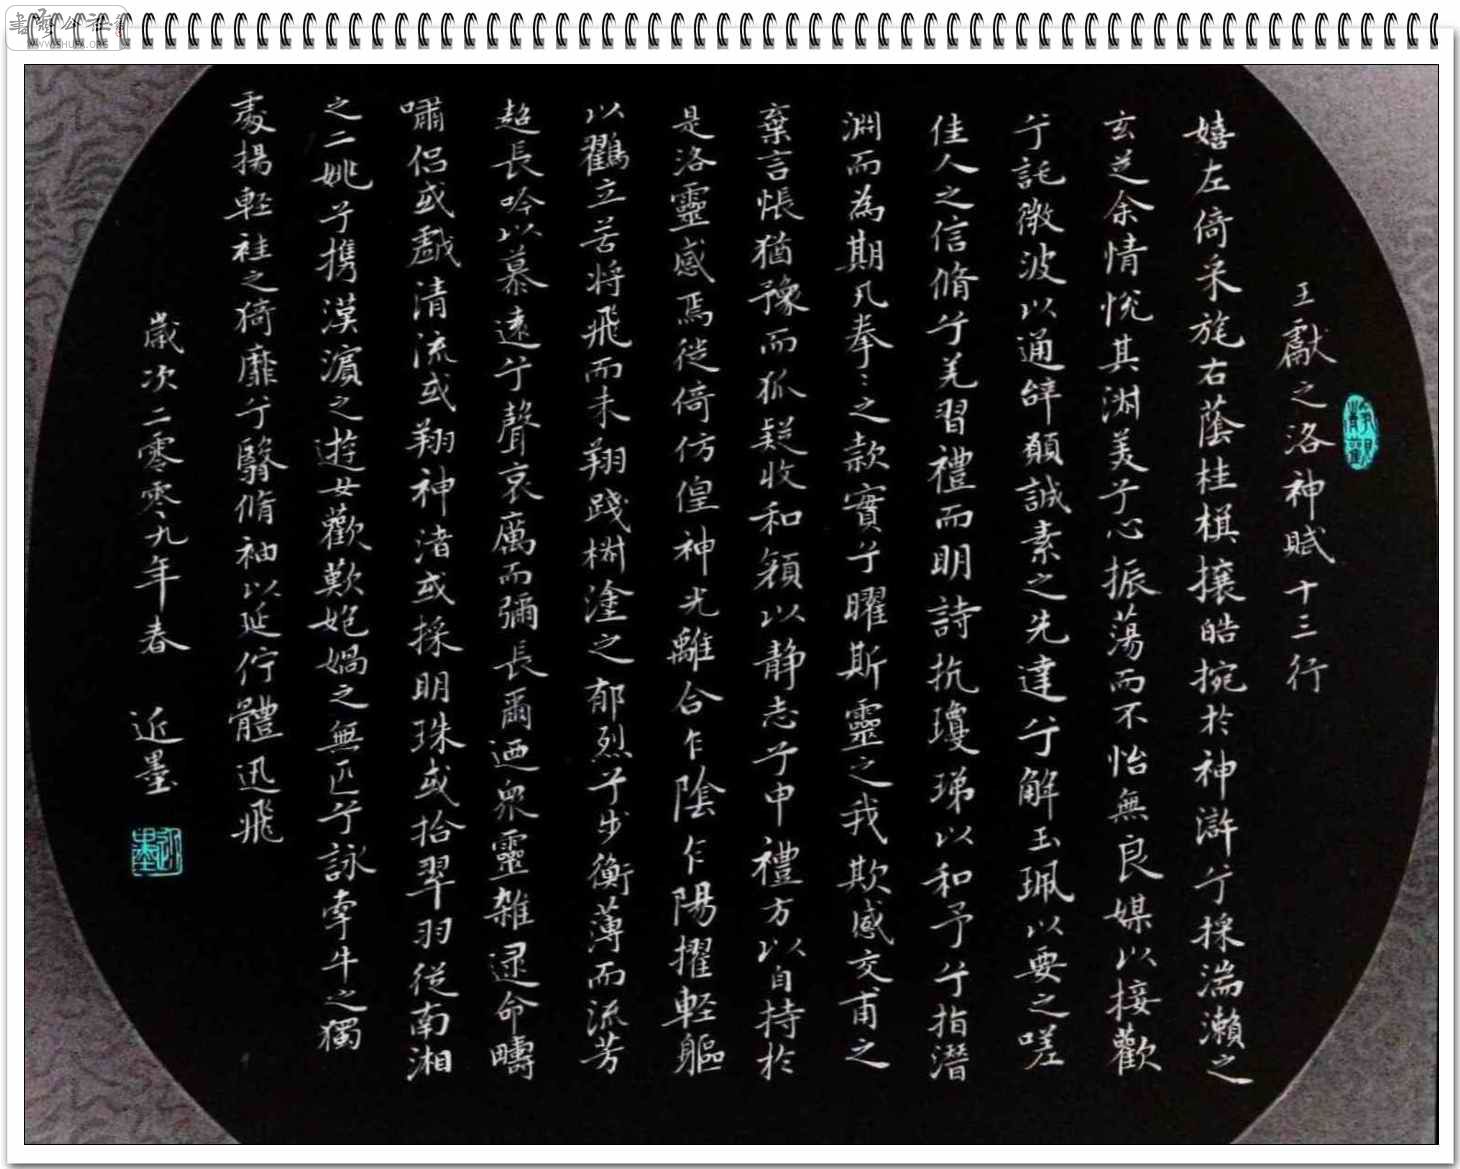 王獻之洛神賦十三行
嬉左倚采旄右蔭桂棋攘皓捥於神滸兮採湍瀨之
玄芝余情悅其淵美兮心振蕩而不怡無良媒以接歡
兮託微波以通辞願誠素之先達兮解玉珮以要之嗟
佳人之信脩兮羌習禮而明詩抗瓊珶以和予兮指潛
淵而為期凡拳〻之款實兮曜斯靈之我欺感交甫之
棄言悵猶豫而狐疑收和顏以静志兮申禮方以自持於
是洛靈感焉徙倚仿偟神光離合乍陰乍陽擢軽軀
以鸛立若将飛而未翔踐椒塗之郁烈兮步衡薄而流芳
超長吟以慕遠兮聲哀厲而彌長爾迺眾靈雜遝命疇
嘯侶或戲清流或翔神渚或採明珠或拾翠羽從南湘
之二姚兮携漢濱之遊女歡歎匏媧之無匹兮詠牽牛之獨
處揚軽袿之猗靡兮翳脩袖以延佇體迅飛
歲次二零零九年春 近墨
近墨
静觀
WWW.SHUFA.ORG